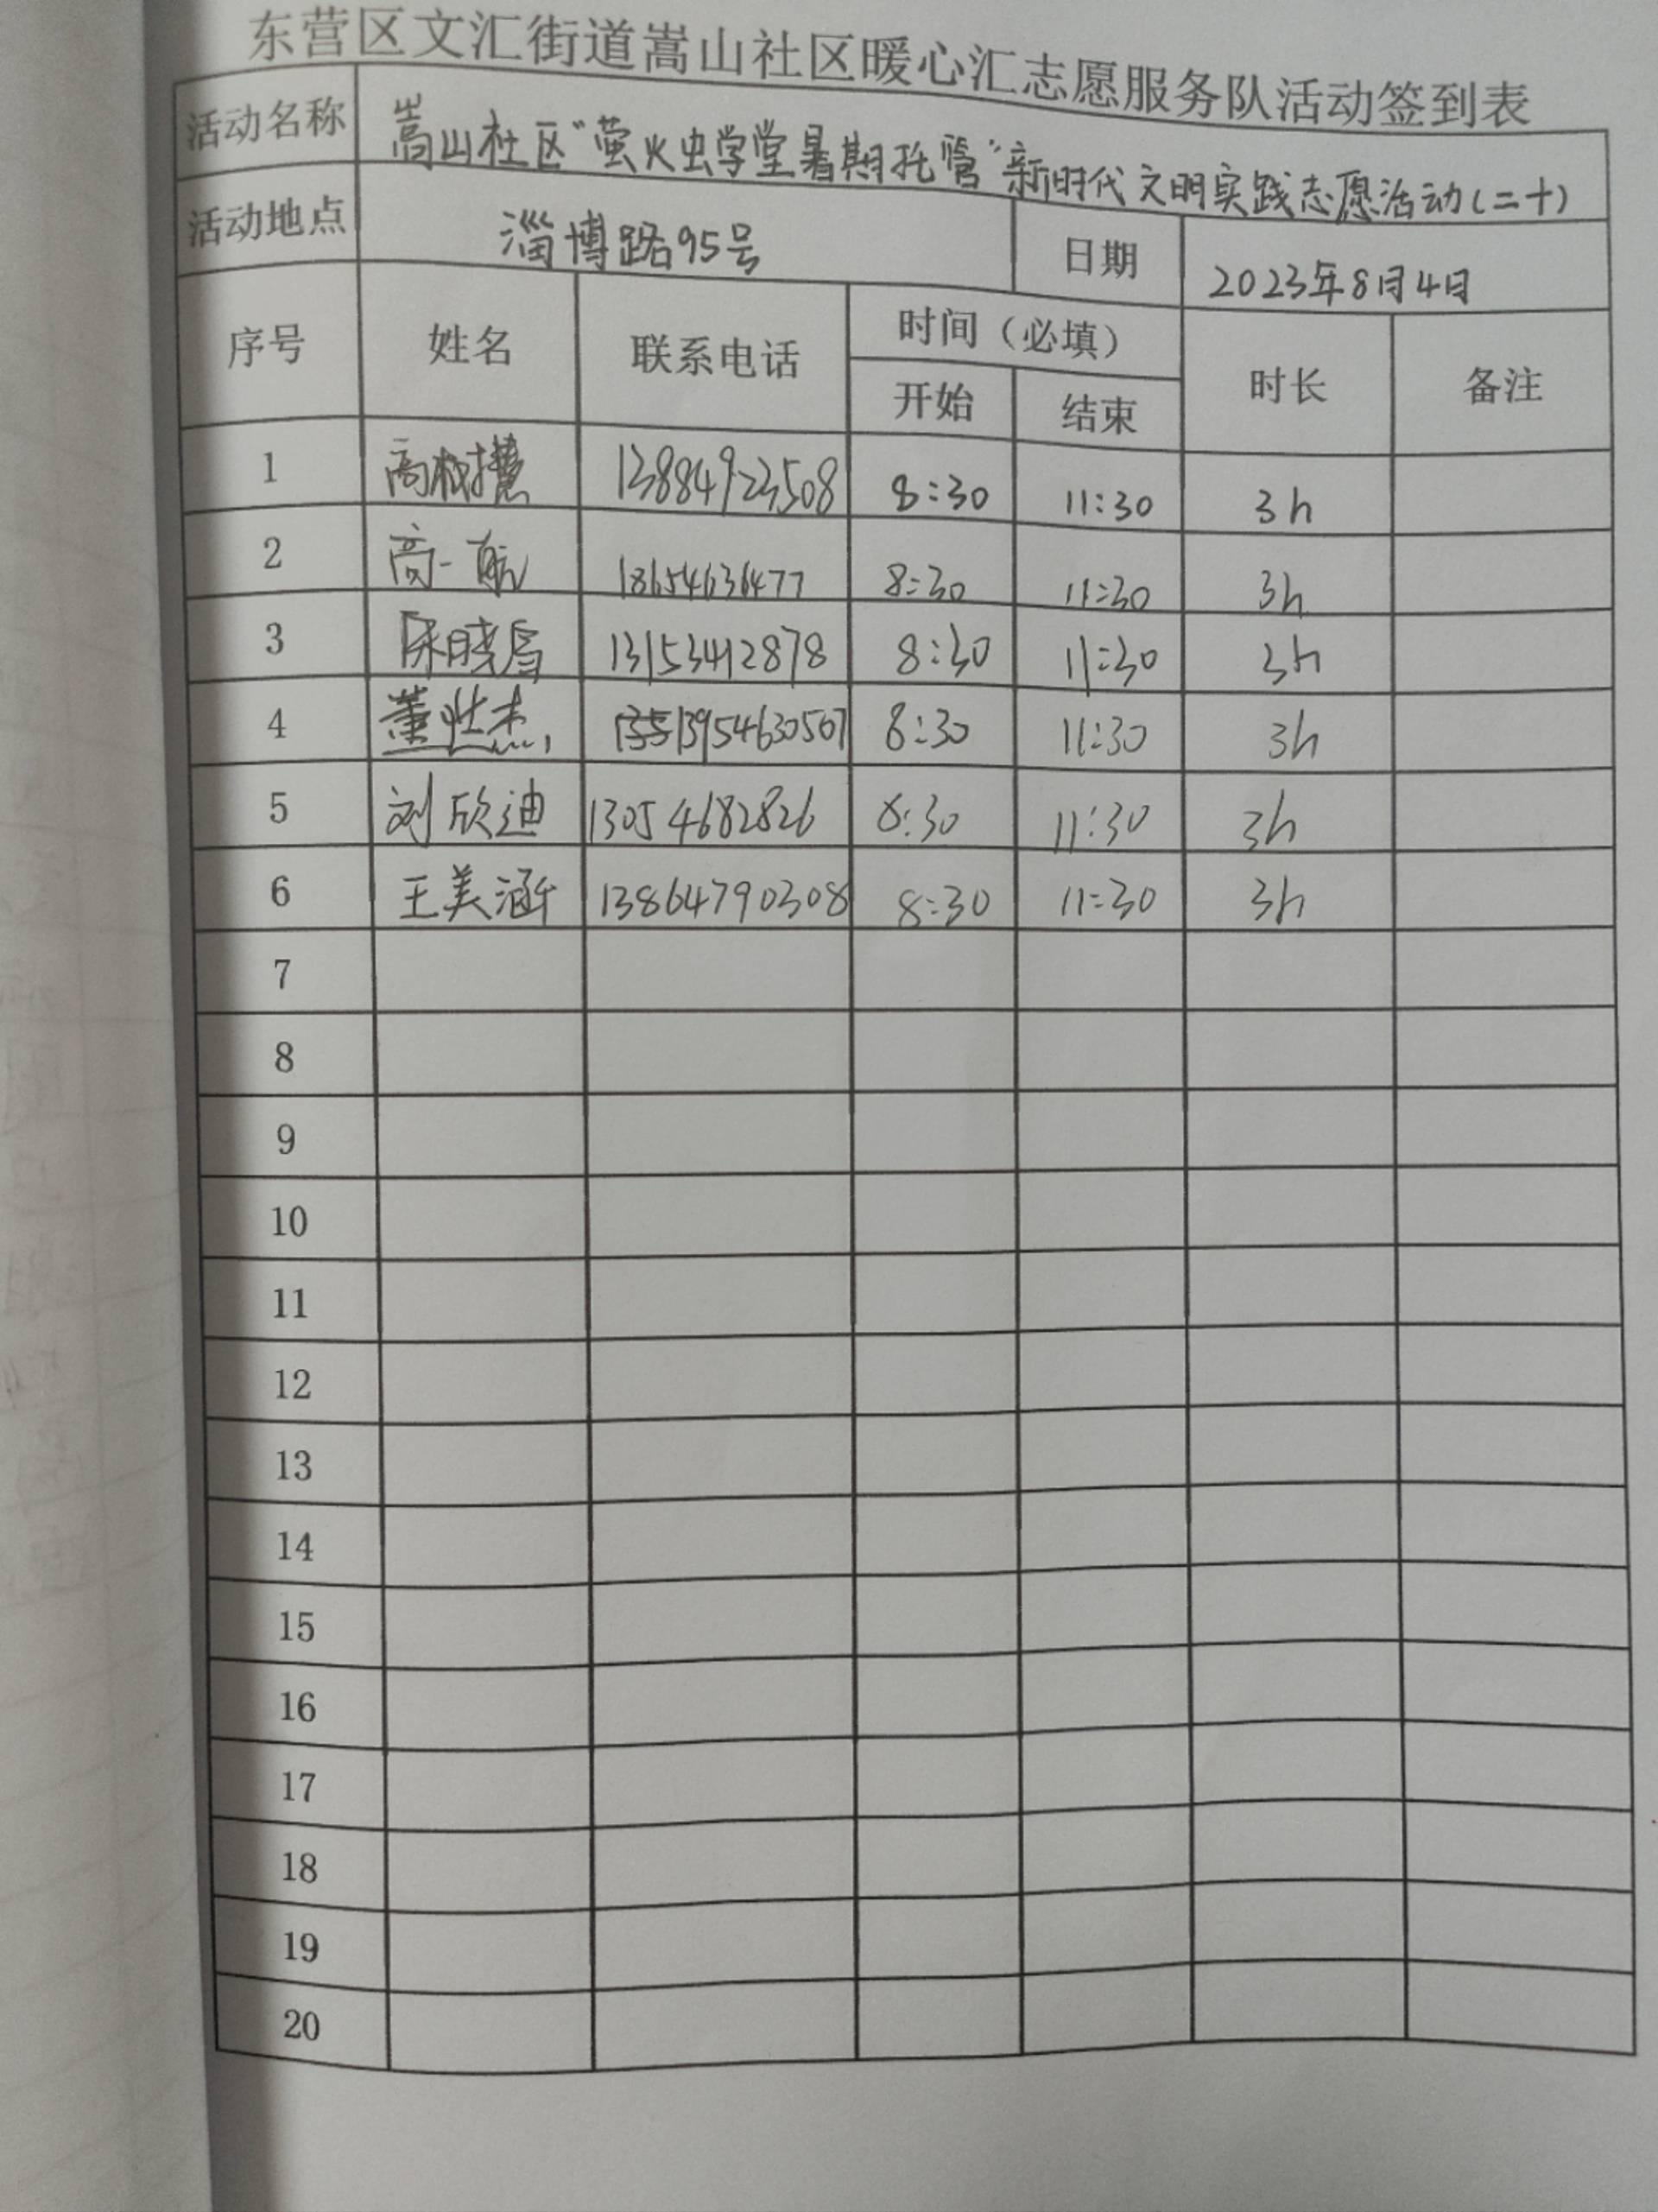 东营区文汇街道嵩山社区暖心汇志愿服务队活动签到表
活动名称 嵩山社区“萤火虫学堂暑期托管”新时代文明实践志愿活动(二十)
活动地点 淄博路95号 日期 2023年8月4日
序号 姓名 联系电话 时间（必填） 时长 备注
开始 结束
1 高 13884923508 8:30 11:30 3h
2 高一航 18654636477 8:30 11:30 3h
3 陈晓雪 13153412878 8:30 11:30 3h
4 董壮杰 13954630507 8:30 11:30 3h
5 刘欣迪 13054682826 8:30 11:30 3h
6 王美涵 13864790308 8:30 11:30 3h
7
8
9
10
11
12
13
14
15
16
17
18
19
20